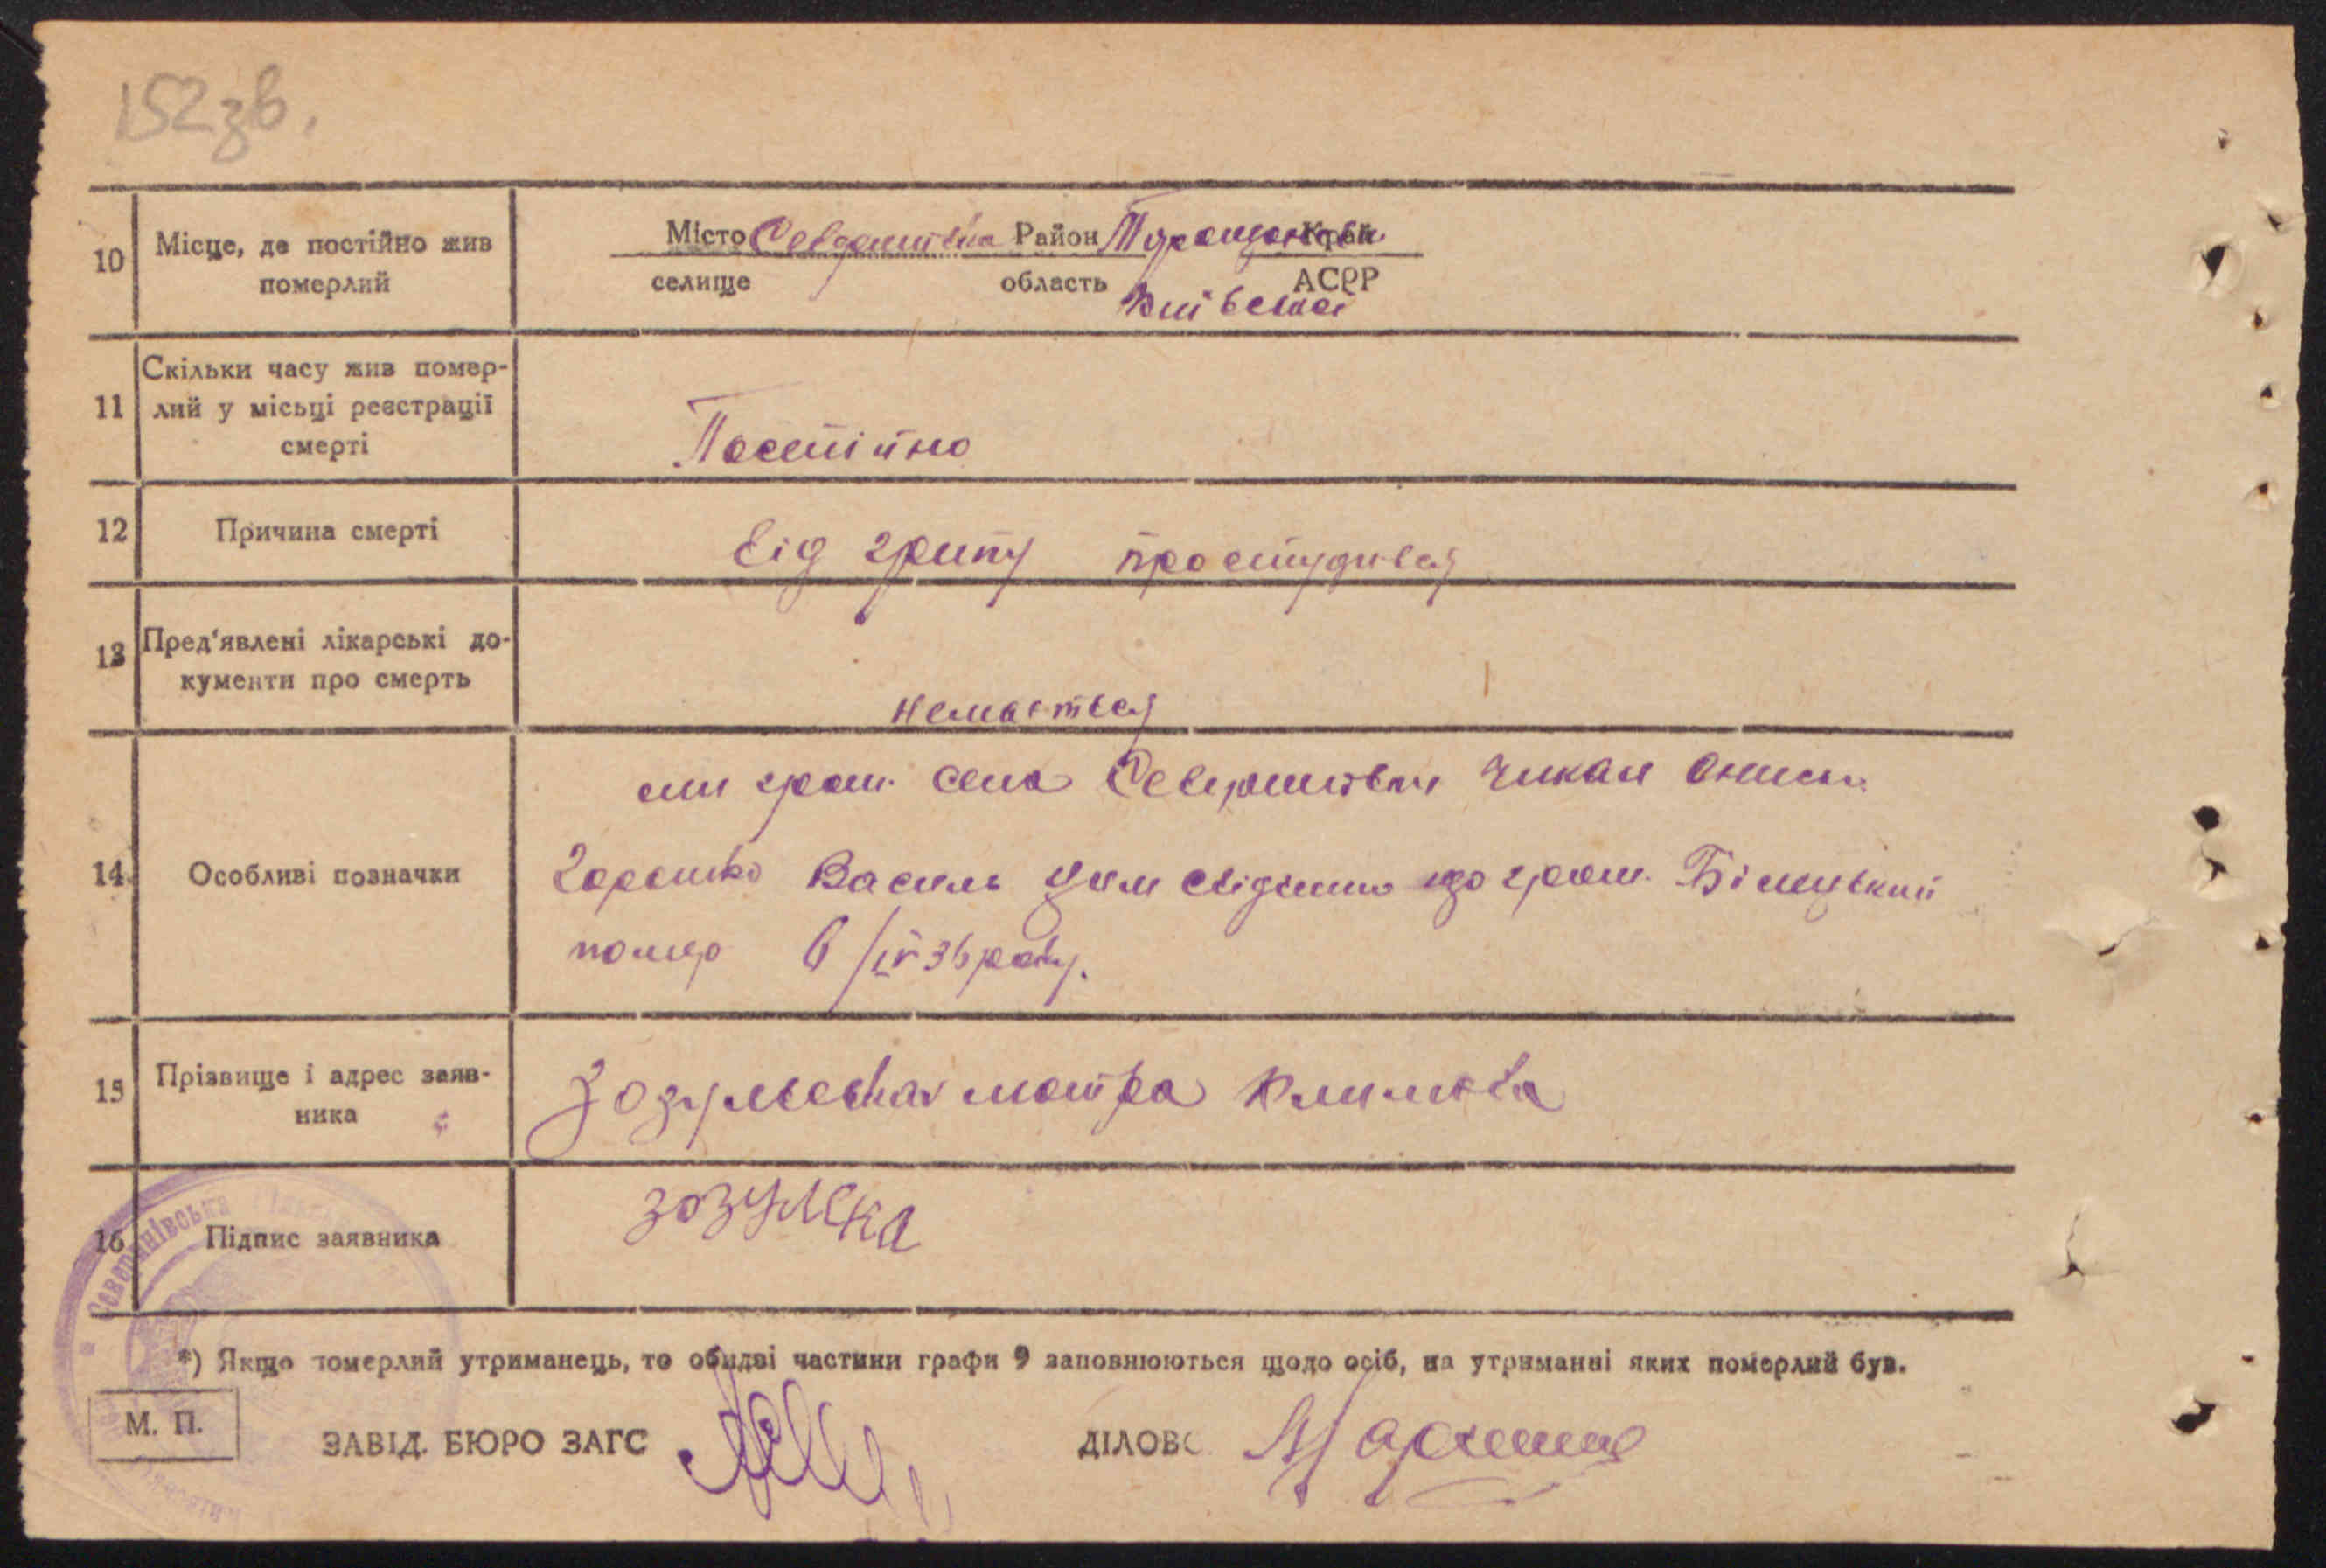 152зв.
10 Місце, де постійно жив померлий
Місто Северинівка Район Таращанськ Край
селище область Київської АСРР
11 Скільки часу жив помер-
лий у місьці реєстрації
смерті
Постійно
12 Причина смерті
Від грипу простудивсь
13 Пред'явлені лікарські до-
кументи про смерть
немається
14 Особливі позначки
ми гром. села Северинівки Чикал Онись
Горошко Василь цим свідчимо що гром. Білицький
помер 6/IV 36 року.
15 Прізвище і адрес заяв-
ника
мотра Климівна
16 Підпис заявника
зозулска
Северинівська
*) Якщо померлий утриманець, то обидві частини графи 9 заповнюються щодо осіб, на утриманні яких померлий був.
М. П.
ЗАВІД. БЮРО ЗАГС
ДІЛОВ